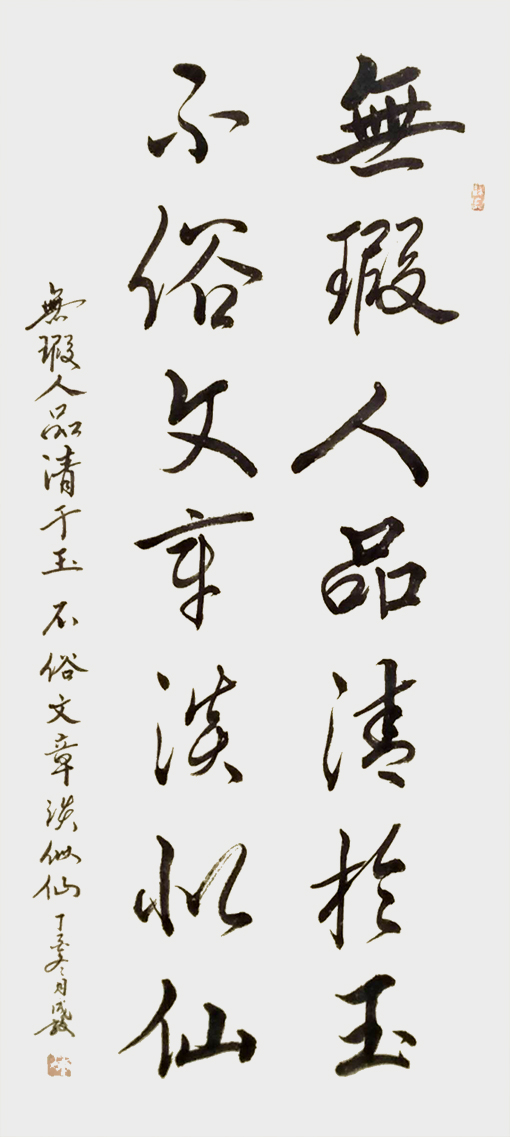 無瑕人品清於玉
不俗文章淡似仙
無瑕人品清于玉 不俗文章淡似仙 丁亥冬月